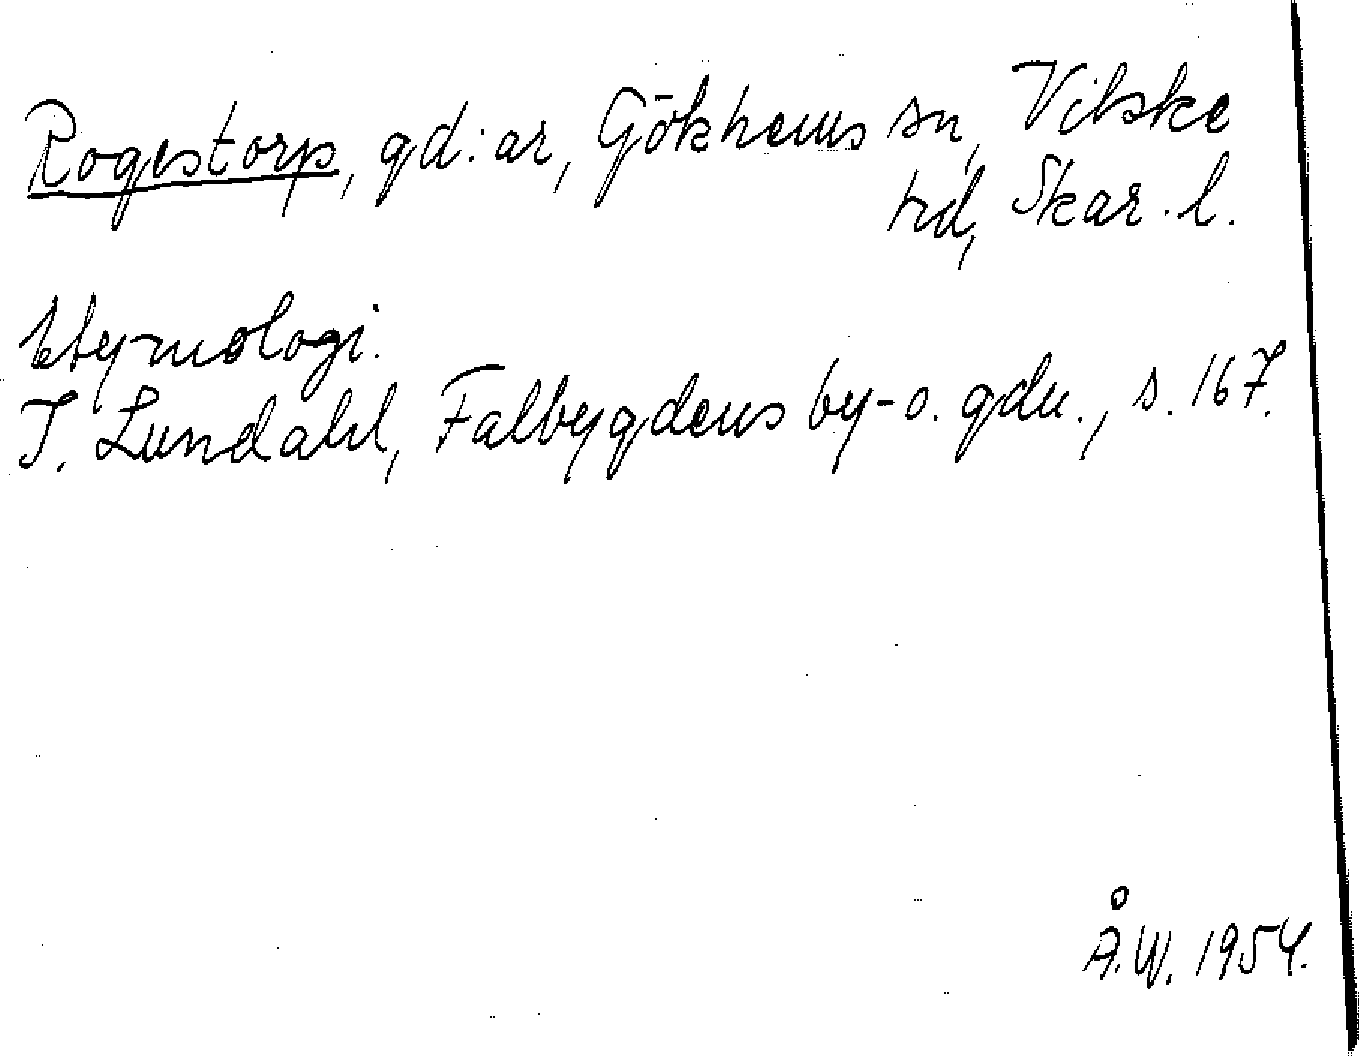 Rogestorp, gd:ar, Gökhems sn, Vilske
hd, Skar. l.
Etymologi.
I. Lundahl, Falbygdens by- o. gdn., s. 167.
Å.W. 1954.